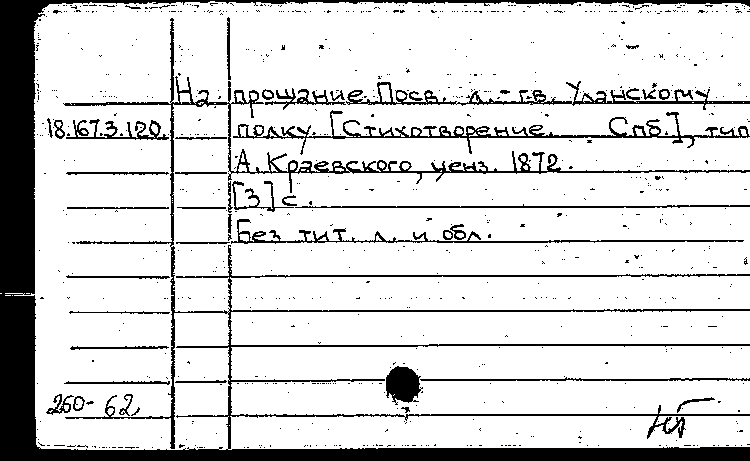 На прощание. Посв. л.-гв. Уланскому
18.167.3.120. полку. [Стихотворение. Спб.], тип
А. Краевского, ценз. 1872.
[3] с.
Без тит. л. и обл.
260-62.